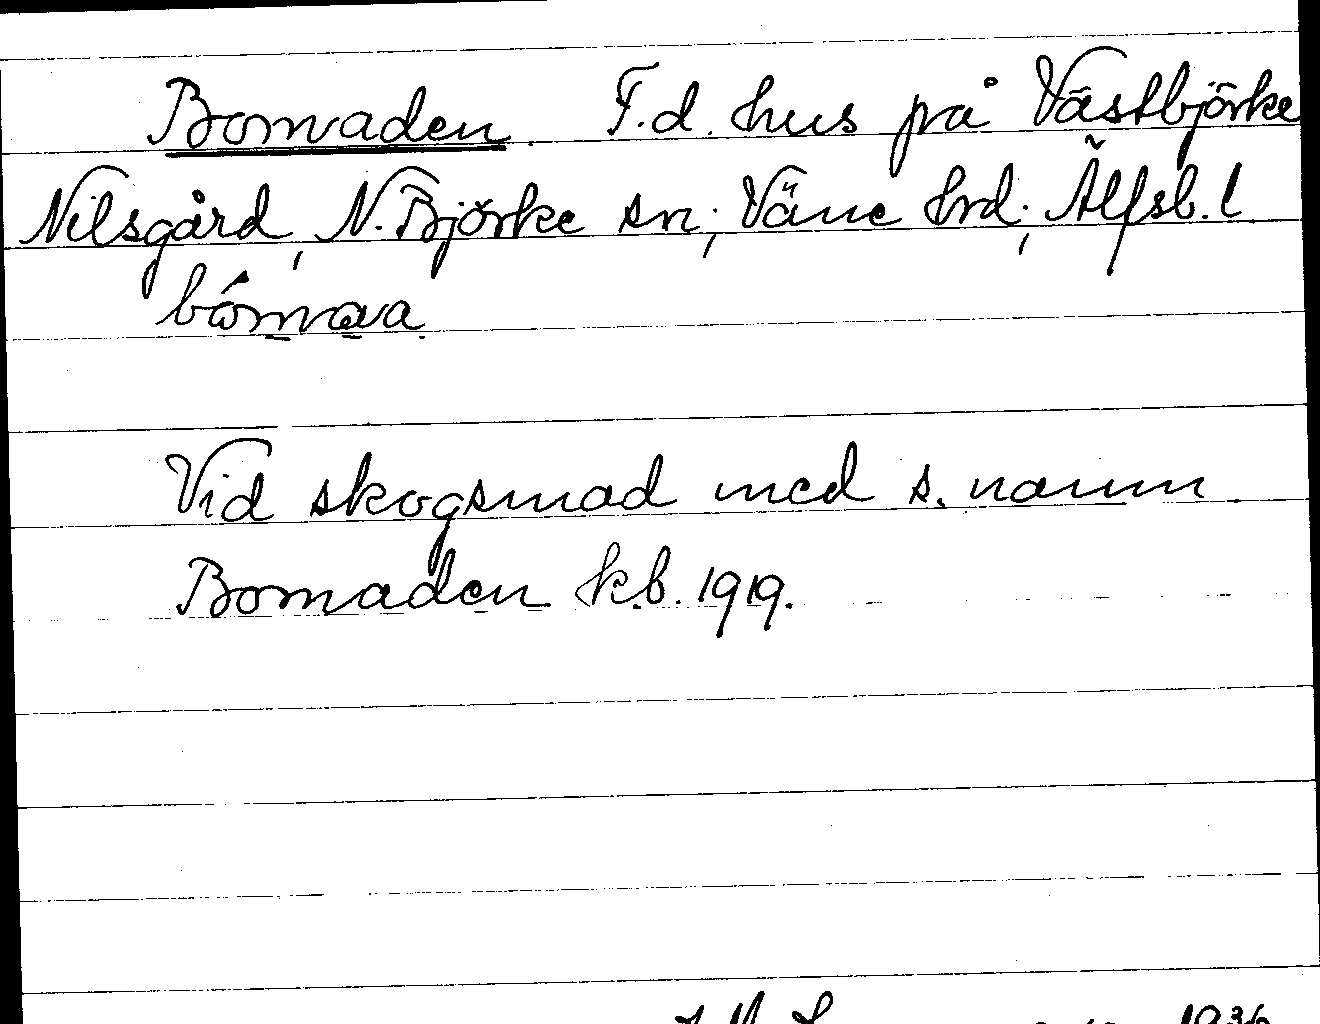 Bomaden. F.d. hus på Västbjörke
Nilsgård, N. Björke sn; Väne hrd; Älfsb. l.
Vid skogsmad med s. namn.
Bomaden k.b. 1919.
1936